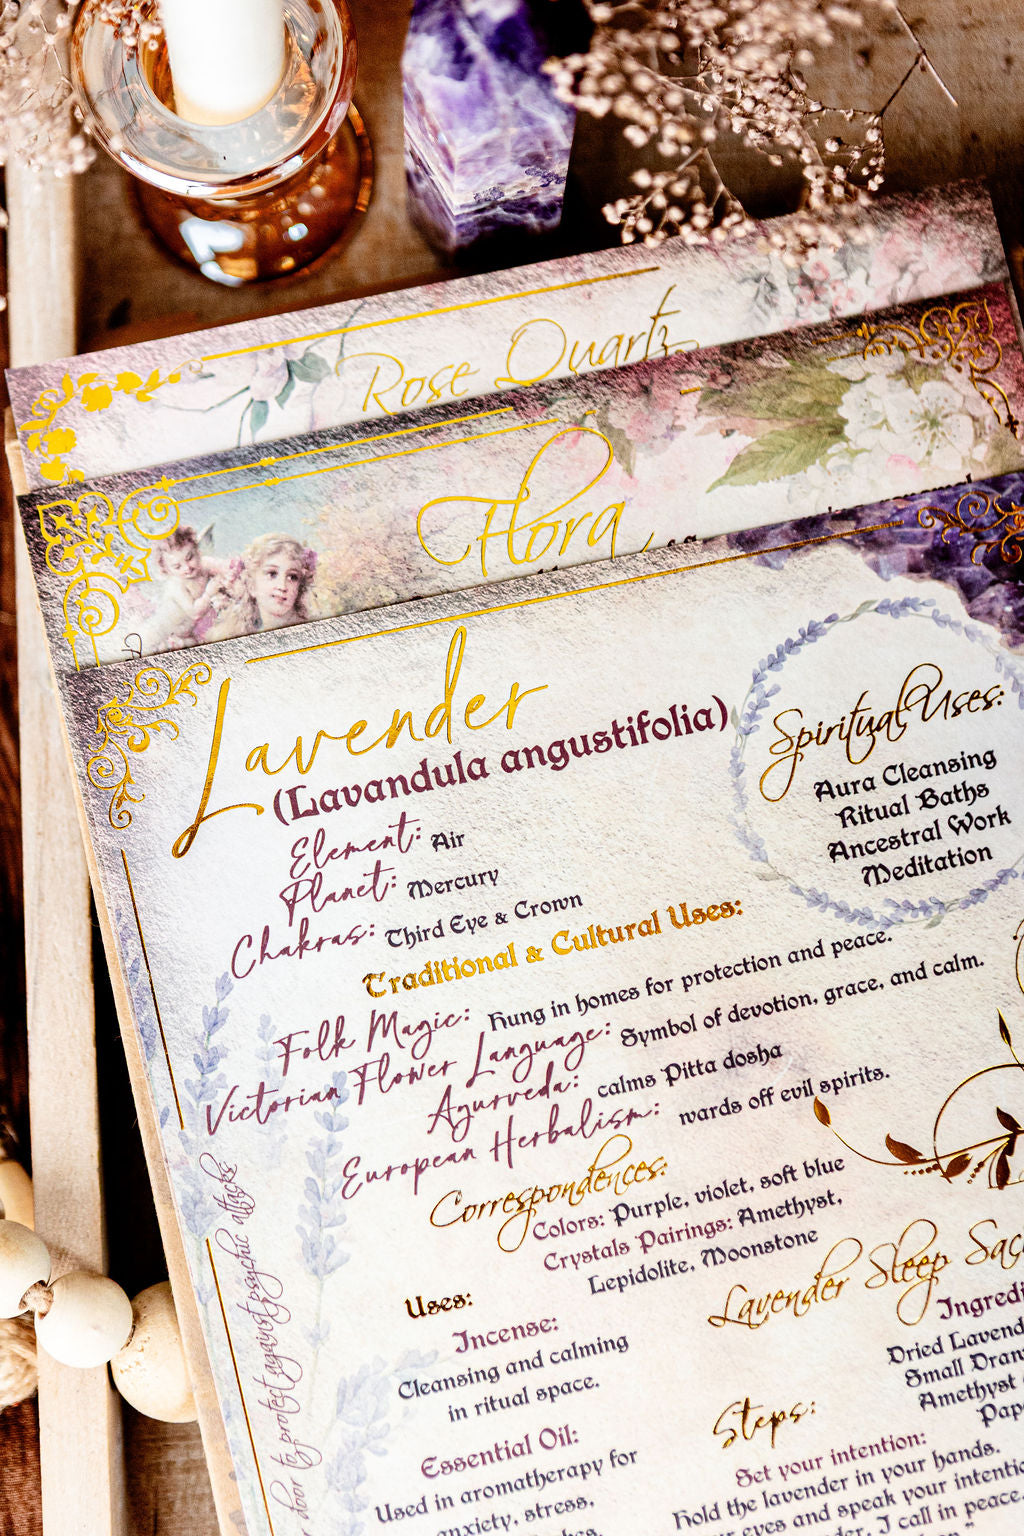 Rose Quartz
Flora
Lavender
(Lavandula angustifolia)
Element: Air
Planet: Mercury
Chakras: Third Eye & Crown
Spiritual Uses:
Aura Cleansing
Ritual Baths
Ancestral Work
Meditation
Traditional & Cultural Uses:
Folk Magic: Hung in homes for protection and peace.
Victorian Flower Language: Symbol of devotion, grace, and calm.
Ayurveda: calms Pitta dosha
European Herbalism: wards off evil spirits.
Correspondences:
Colors: Purple, violet, soft blue
Crystals Pairings: Amethyst,
Lepidolite, Moonstone
Uses:
Incense:
Cleansing and calming
in ritual space.
Essential Oil:
Used in aromatherapy for
anxiety, stress,
Lavender Sleep
Dried
Small
Amethyst
Steps:
Set your intention:
Hold the lavender in your hands.
eyes and speak your
I call in peace,
door to protect against psychic attacks